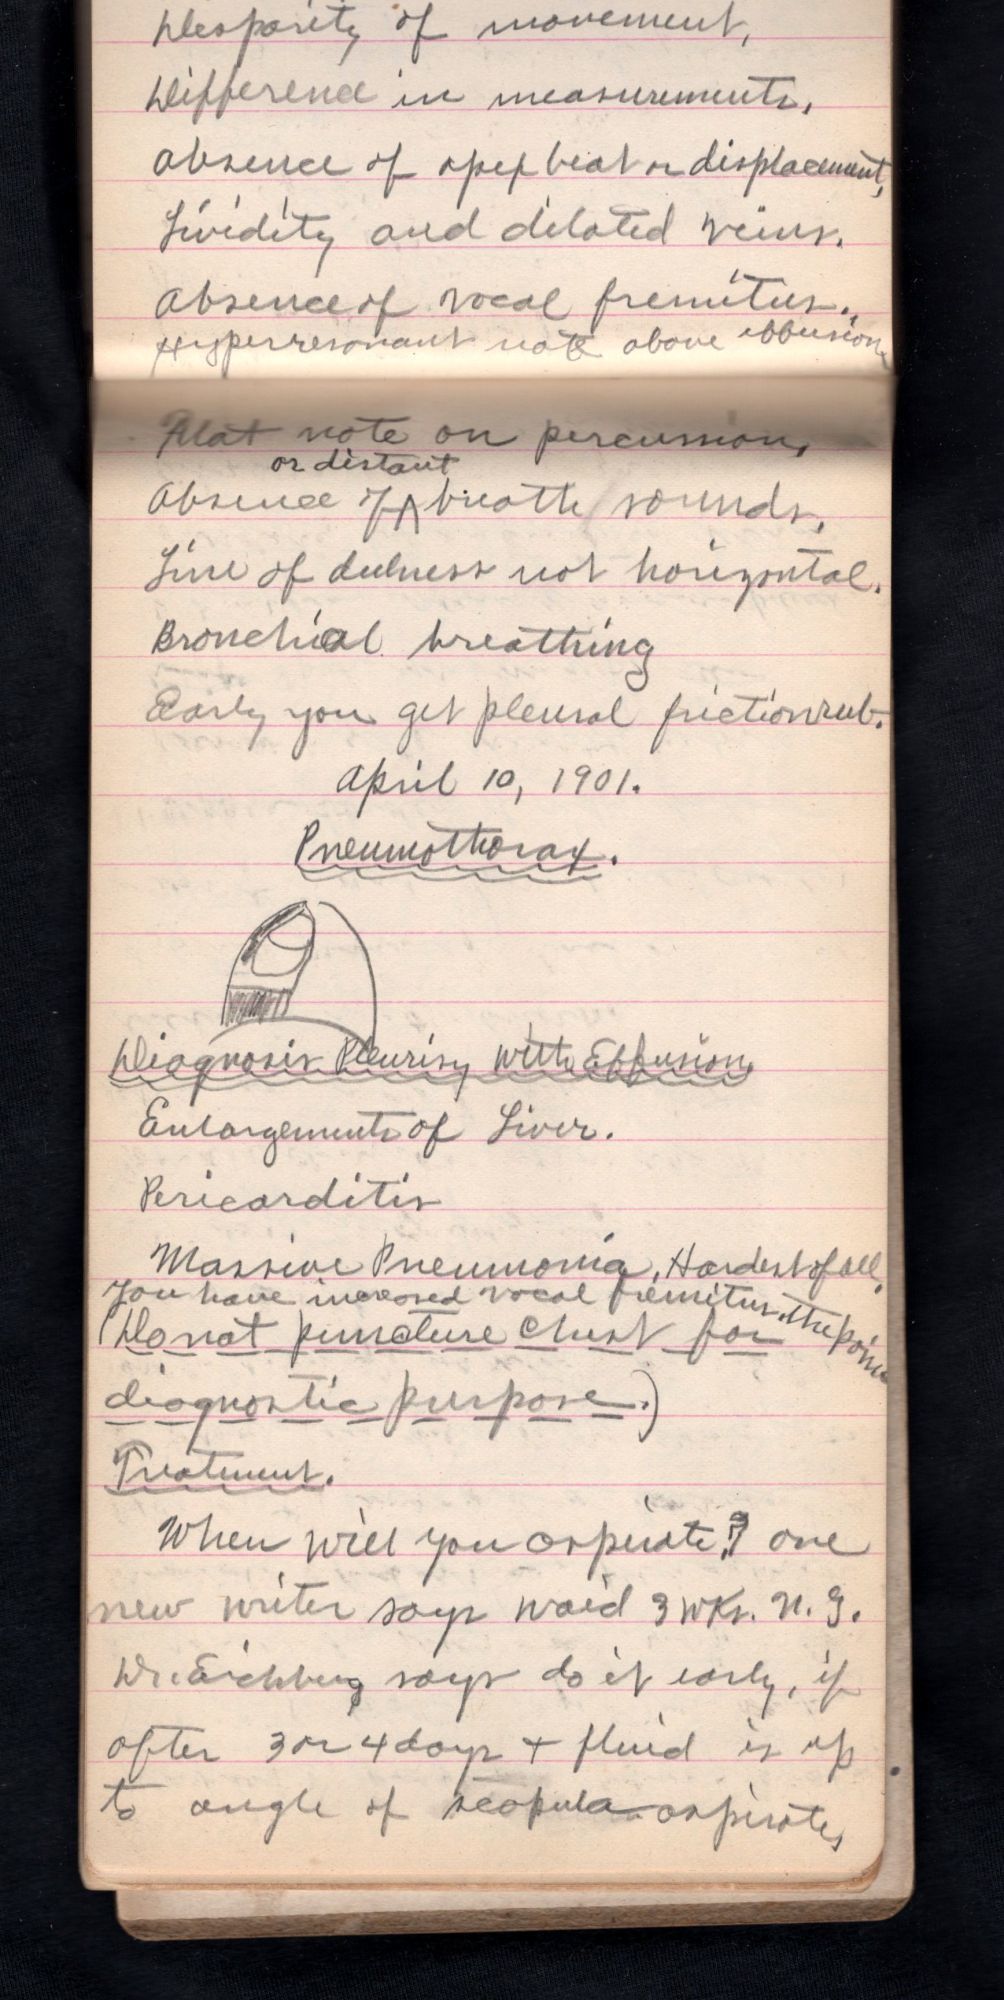 Desparity of movement,
Difference in measurements,
Absence of apex beat or displacement,
Lividity and dilated veins.
Absence of vocal fremitus.,
Hyperresonant note above effusion,
Flat note on percussion,
or distant
Absence of ^ breath sounds,
Line of dulness not horizontal.
Bronchial breathing
Early you get pleural friction rub.
April 10, 1901.
Pneumothorax.
Diagnosis Pleurisy with Effusion,
Enlargements of Liver.
Pericarditis
Massive Pneumonia, Hardest of all,
You have increased vocal fremitus, the point
(Do not puncture chest for
diagnostic purpose.)
Treatment.
When will you aspirate? one
new writer says waid 3 wks. N. G.
Dr. Eichberg says do it early, if
after 3 or 4 days + fluid is up
to angle of scapula aspirate,